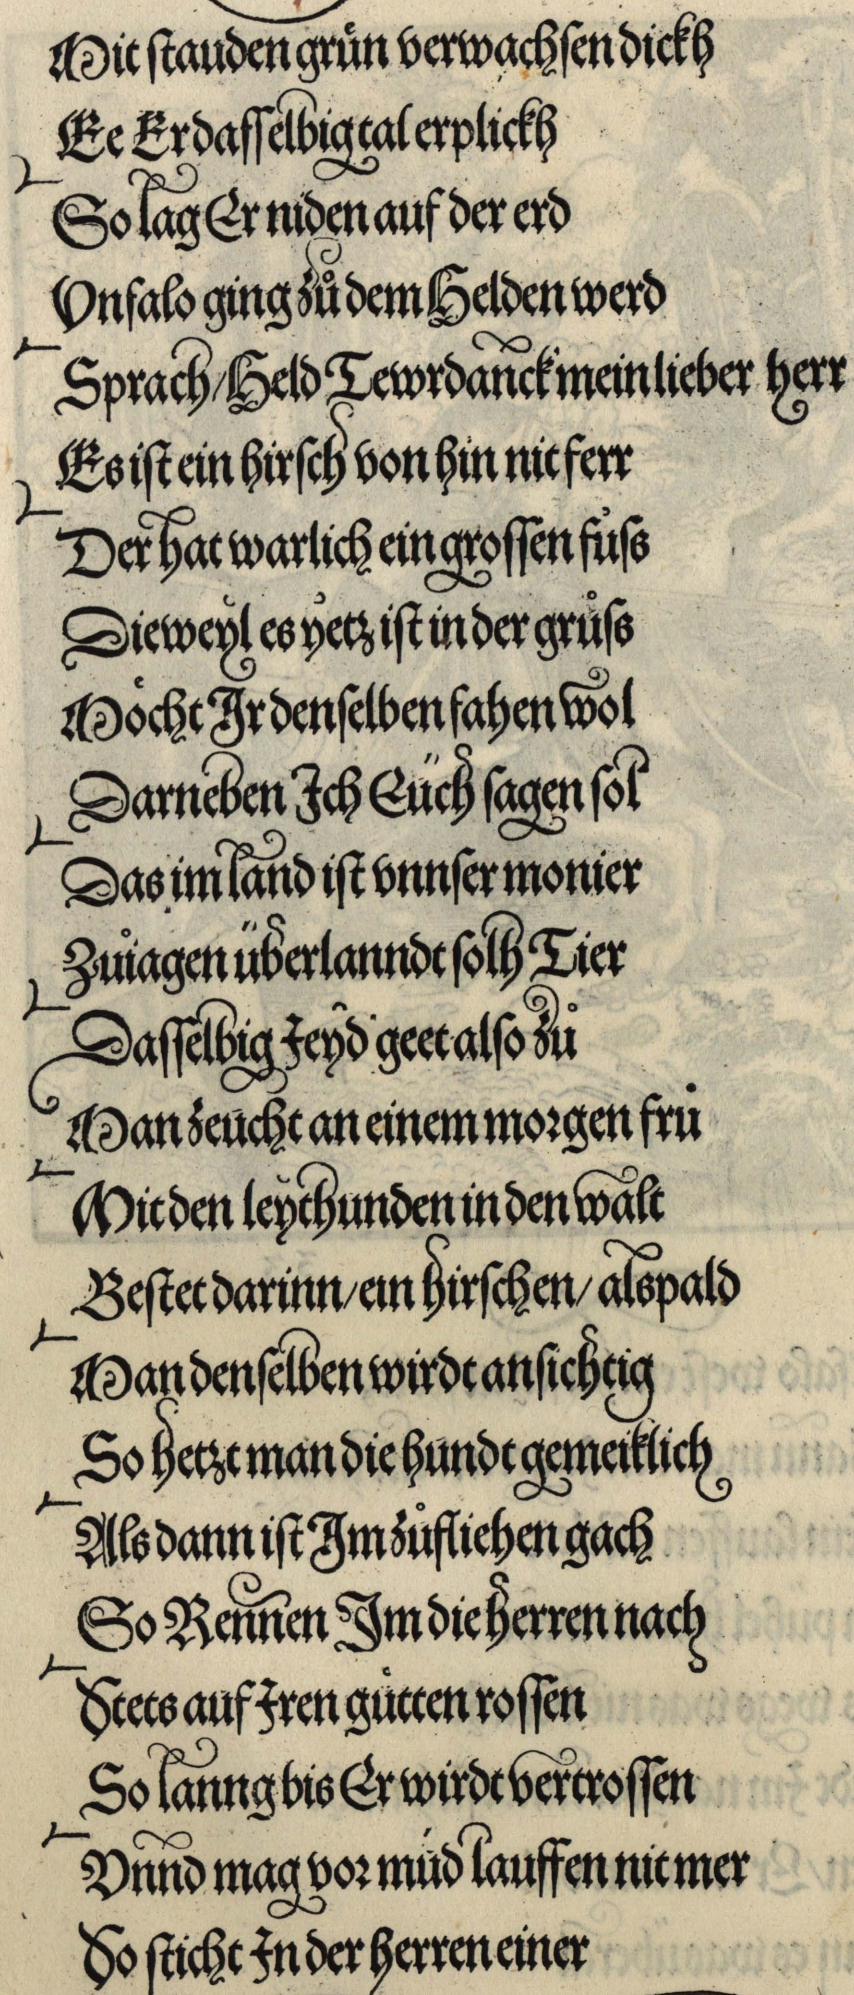 Mit stauden grün verwachsen dickh
Ee Er dasselbig tal erplickh
So lag Er niden auf der erd
Vnfalo ging zů dem Helden werd
Sprach/Held Tewrdannck mein lieber herr
Es ist ein hirsch von hin nit ferr
Der hat warlich ein grossen fůss
Dieweyl es yetz ist in der grůss
Möcht Ir denselben fahen wol
Darneben Ich Eüch sagen sol
Das im land ist vnnser monier
Zuiagen überlanndt solh Tier
Dasselbig Jeyd geet also zů
Man zeucht an einem morgen frů
Mit den leythunden in den walt
Bestet darinn/ein hirschen/alspald
Man denselben wirdt ansichtig
So hetzt man die hundt gemeiklich
Als dann ist Im zůfliehen gach
So Rennen Im die herren nach
Stets auf Iren gůtten rossen
So lanng bis Er wirdt vertrossen
Vnnd mag vor müd lauffen nit mer
So sticht In der herren einer